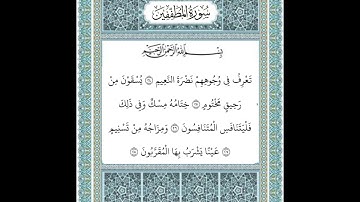 سُورَةُ المُطَفِّفِينَ
بِسْمِ اللَّهِ الرَّحْمَٰنِ الرَّحِيمِ
تَعْرِفُ فِي وُجُوهِهِمْ نَضْرَةَ النَّعِيمِ ﴿٢٤﴾ يُسْقَوْنَ مِن
رَّحِيقٍ مَّخْتُومٍ ﴿٢٥﴾ خِتَامُهُ مِسْكٌ وَفِي ذَٰلِكَ
فَلْيَتَنَافَسِ الْمُتَنَافِسُونَ ﴿٢٦﴾ وَمِزَاجُهُ مِن تَسْنِيمٍ
﴿٢٧﴾ عَيْنًا يَشْرَبُ بِهَا الْمُقَرَّبُونَ ﴿٢٨﴾